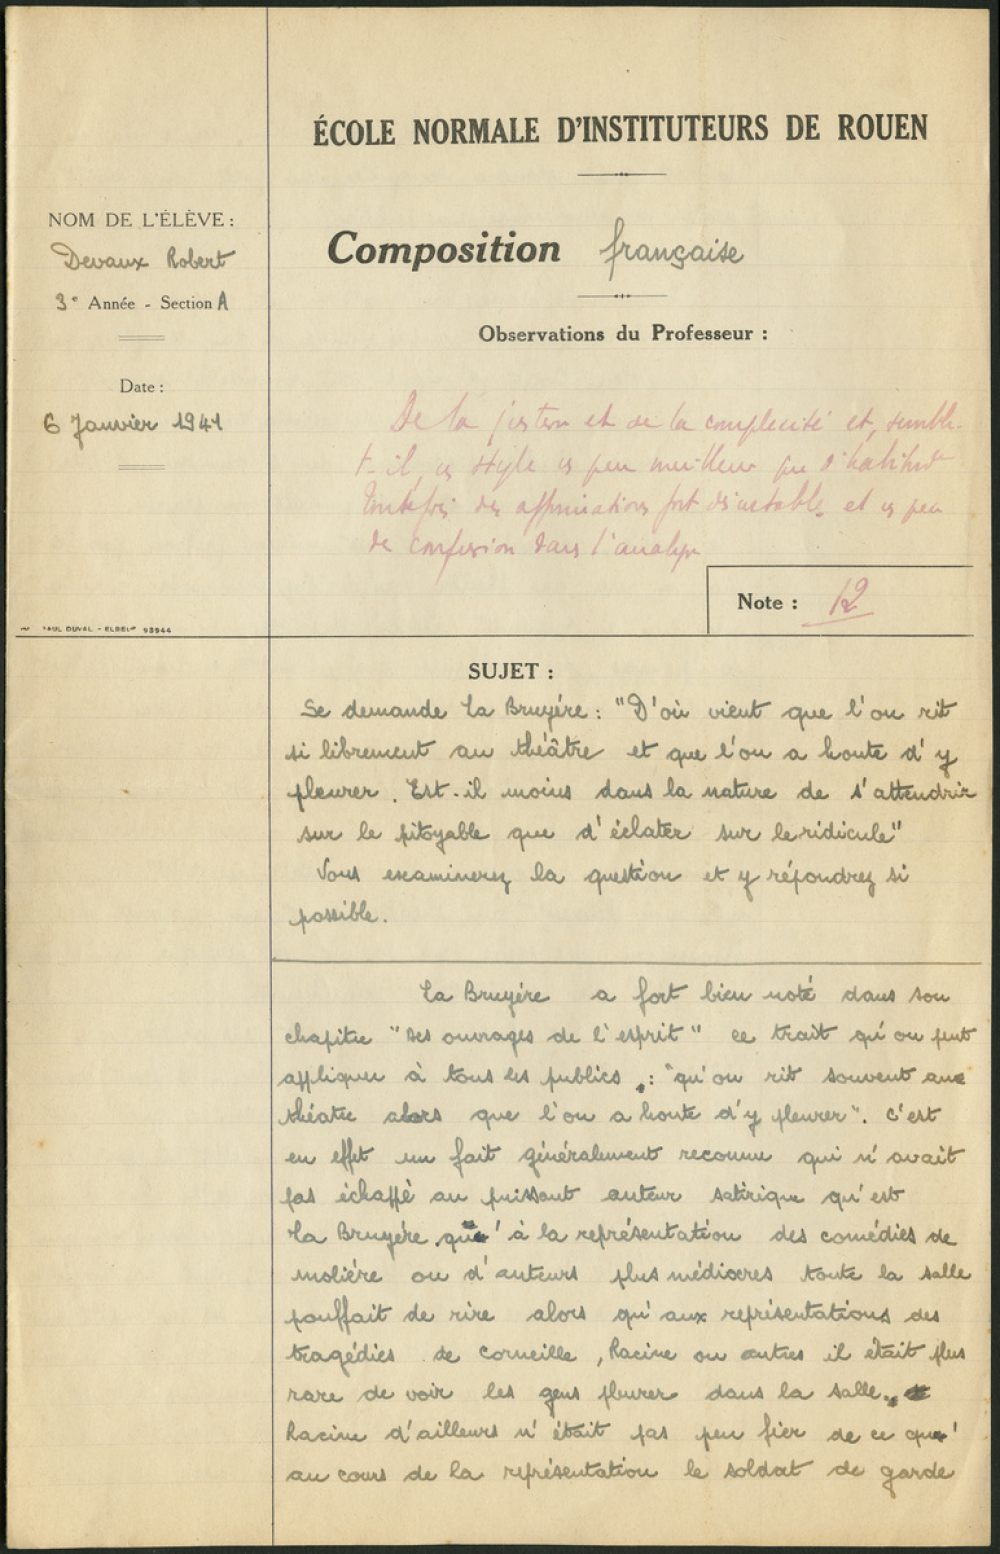 ÉCOLE NORMALE D'INSTITUTEURS DE ROUEN
NOM DE L'ÉLÈVE :
Devaux Robert
3e Année - Section A
Date :
6 Janvier 1941
PAUL DUVAL - ELBEUF 93944
Composition française
Observations du Professeur :
De la justesse et de la complexité et, semble-
t-il, un style un peu meilleur que d'habitude
Toutefois des affirmations fort discutables et un peu
de confusion dans l'analyse
Note : 12
SUJET :
Se demande La Bruyère : "D'où vient que l'on rit
si librement au théâtre et que l'on a honte d'y
pleurer. Est-il moins dans la nature de s'attendrir
sur le pitoyable que d'éclater sur le ridicule"
Vous examinerez la question et y répondrez si
possible.
La Bruyère a fort bien noté dans son
chapitre "Des ouvrages de l'esprit" ce trait qu'on peut
appliquer à tous les publics : "qu'on rit souvent au
théatre alors que l'on a honte d'y pleurer". C'est
en effet un fait généralement reconnu qui n'avait
pas échappé au puissant auteur satirique qu'est
La Bruyère qu'à la représentation des comédies de
Molière ou d'auteurs plus médiocres toute la salle
pouffait de rire alors qu'aux représentations des
tragédies de Corneille, Racine ou autres il était plus
rare de voir les gens pleurer dans la salle.
Racine d'ailleurs n'était pas peu fier de ce qu'
au cours de la représentation le soldat de garde